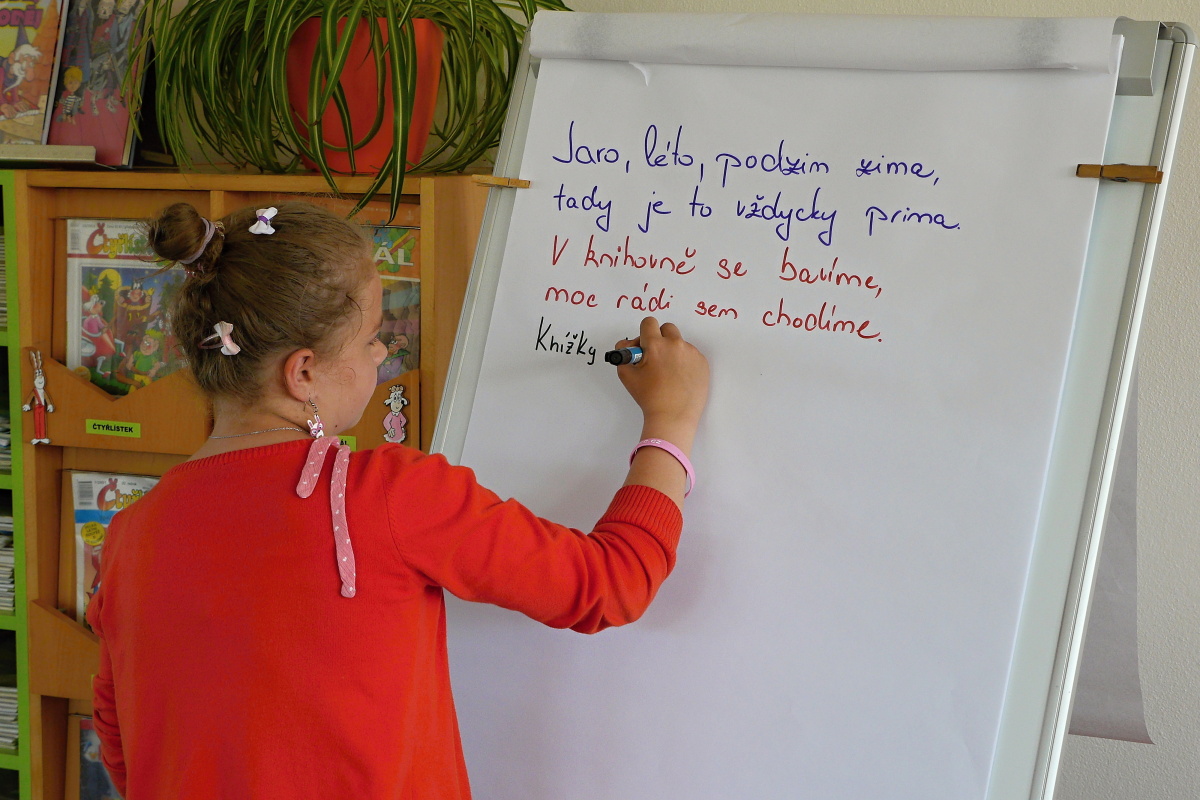 Jaro, léto, podzim zima,
tady je to vždycky prima.
V knihovně se bavíme,
moc rádi sem chodíme.
Knížky
ČTYŘLÍSTEK